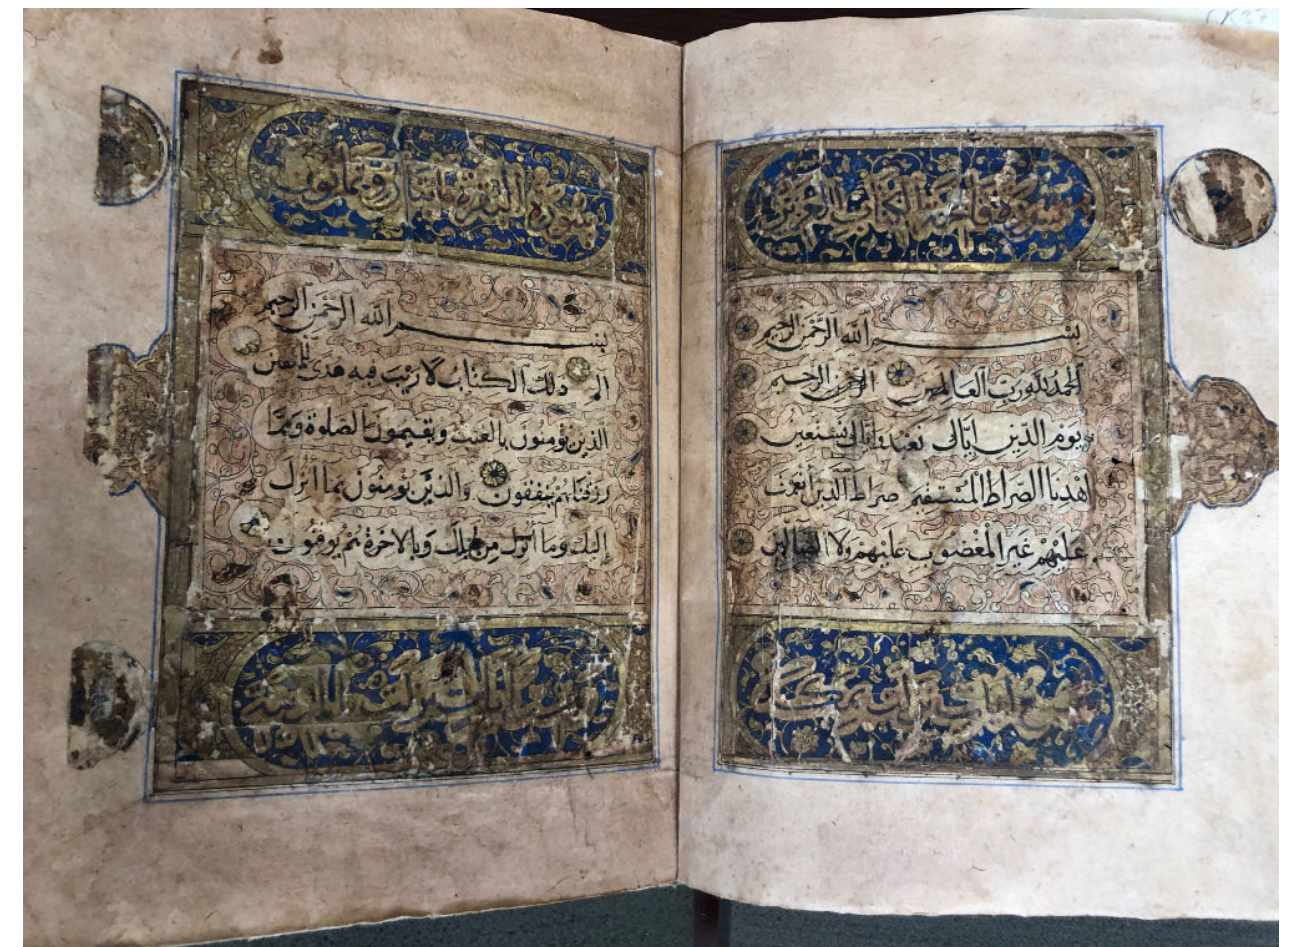 سورة فاتحة الكتاب العزيز
بسم الله الرحمن الرحيم
الحمد لله رب العالمين الرحمن الرحيم
يوم الدين إياك نعبد وإياك نستعين
اهدنا الصراط المستقيم صراط الذين أنعمت
عليهم غير المغضوب عليهم ولا الضالين
سبع ايات نزلت بمكة
سورة البقرة مايتان وثمانون
بسم الله الرحمن الرحيم
الم ذلك الكتاب لا ريب فيه هدى للمتقين
الذين يؤمنون بالغيب ويقيمون الصلوة ومما
رزقناهم ينفقون والذين يؤمنون بما أنزل
إليك وما أنزل من قبلك وبالاخرة هم يوقنون
وست ايات نزلت